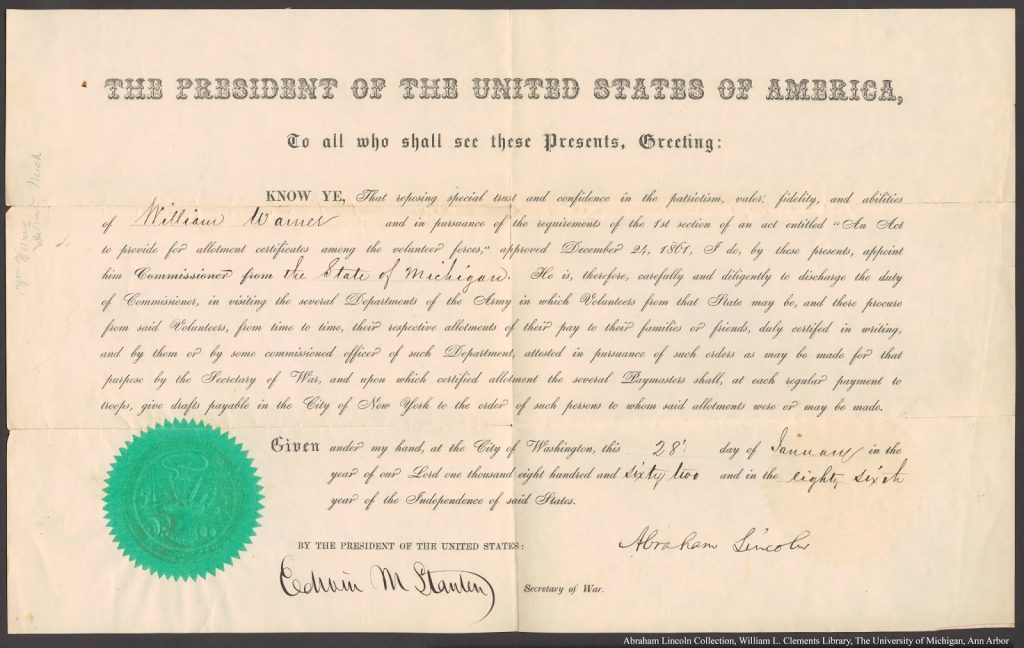 THE PRESIDENT OF THE UNITED STATES OF AMERICA,
To all who shall see these Presents, Greeting:
KNOW YE, That reposing special trust and confidence in the patriotism, valor, fidelity, and abilities
of William Warner and in pursuance of the requirements of the 1st section of an act entitled "An Act
to provide for allotment certificates among the volunteer forces," approved December 24, 1861, I do, by these presents, appoint
him Commissioner from the State of Michigan. He is, therefore, carefully and diligently to discharge the duty
of Commissioner, in visiting the several Departments of the Army in which Volunteers from that State may be, and there procure
from said Volunteers, from time to time, their respective allotments of their pay to their families or friends, duly certifed in writing,
and by them or by some commissioned officer of such Department, attested in pursuance of such orders as may be made for that
purpose by the Secretary of War, and upon which certified allotment the several Paymasters shall, at each regular payment to
troops, give drafts payable in the City of New York to the order of such persons to whom said allotments were or may be made.
Given under my hand, at the City of Washington, this 28' day of January in the
year of our Lord one thousand eight hundred and sixty two and in the eighty sixth
year of the Independence of said States.
Abraham Lincoln
BY THE PRESIDENT OF THE UNITED STATES:
Edwin M Stanton
Secretary of War.
Detroit Mich
Abraham Lincoln Collection, William L. Clements Library, The University of Michigan, Ann Arbor